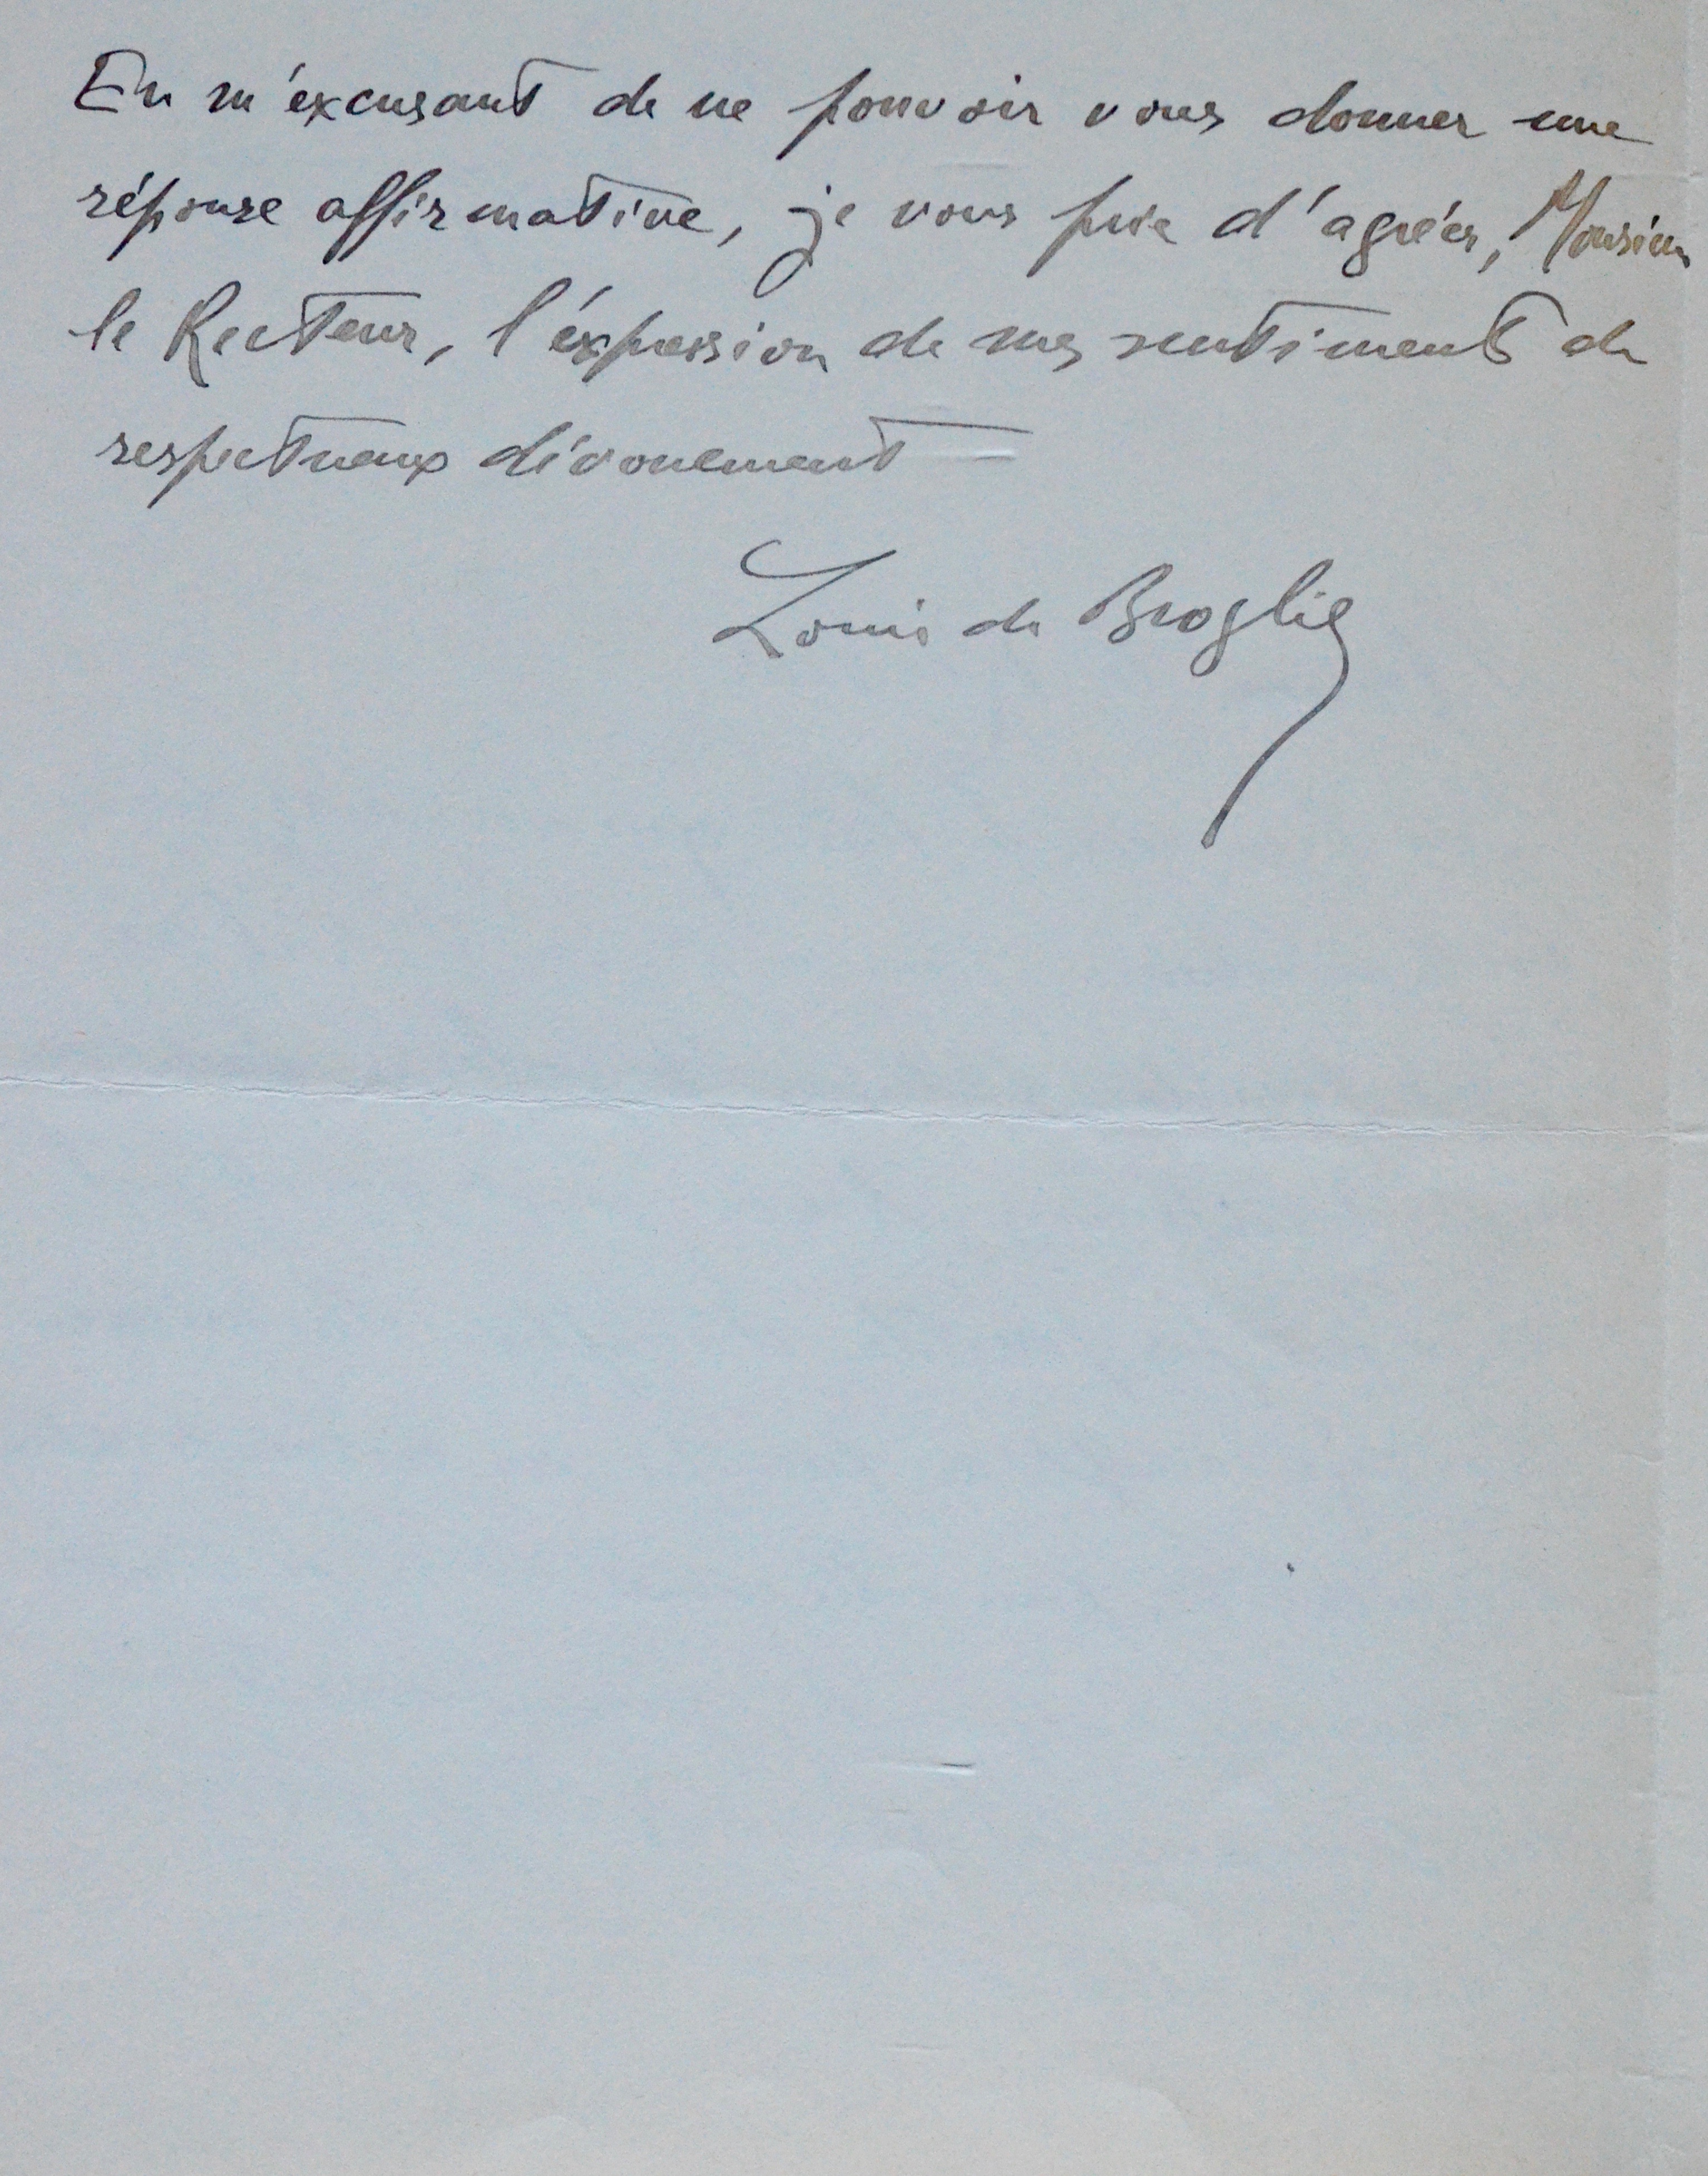 En m'éxcusant de ne pouvoir vous donner une
réponse affirmative, je vous prie d'agréer, Monsieur
le Recteur, l'éxpression de mes sentiments de
respectueux dévouement
Louis de Broglie